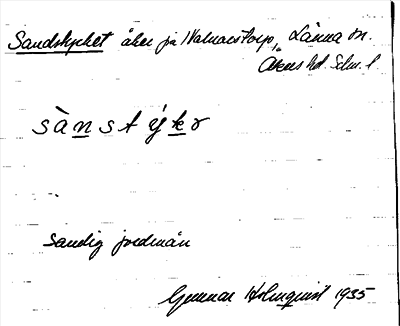 Sandstycket åker på Valnaístorp, Länna sn.
Åkers hd. Södm. l.
sànstýkə
sandig jordmån
Gunnar Holmquist 1935